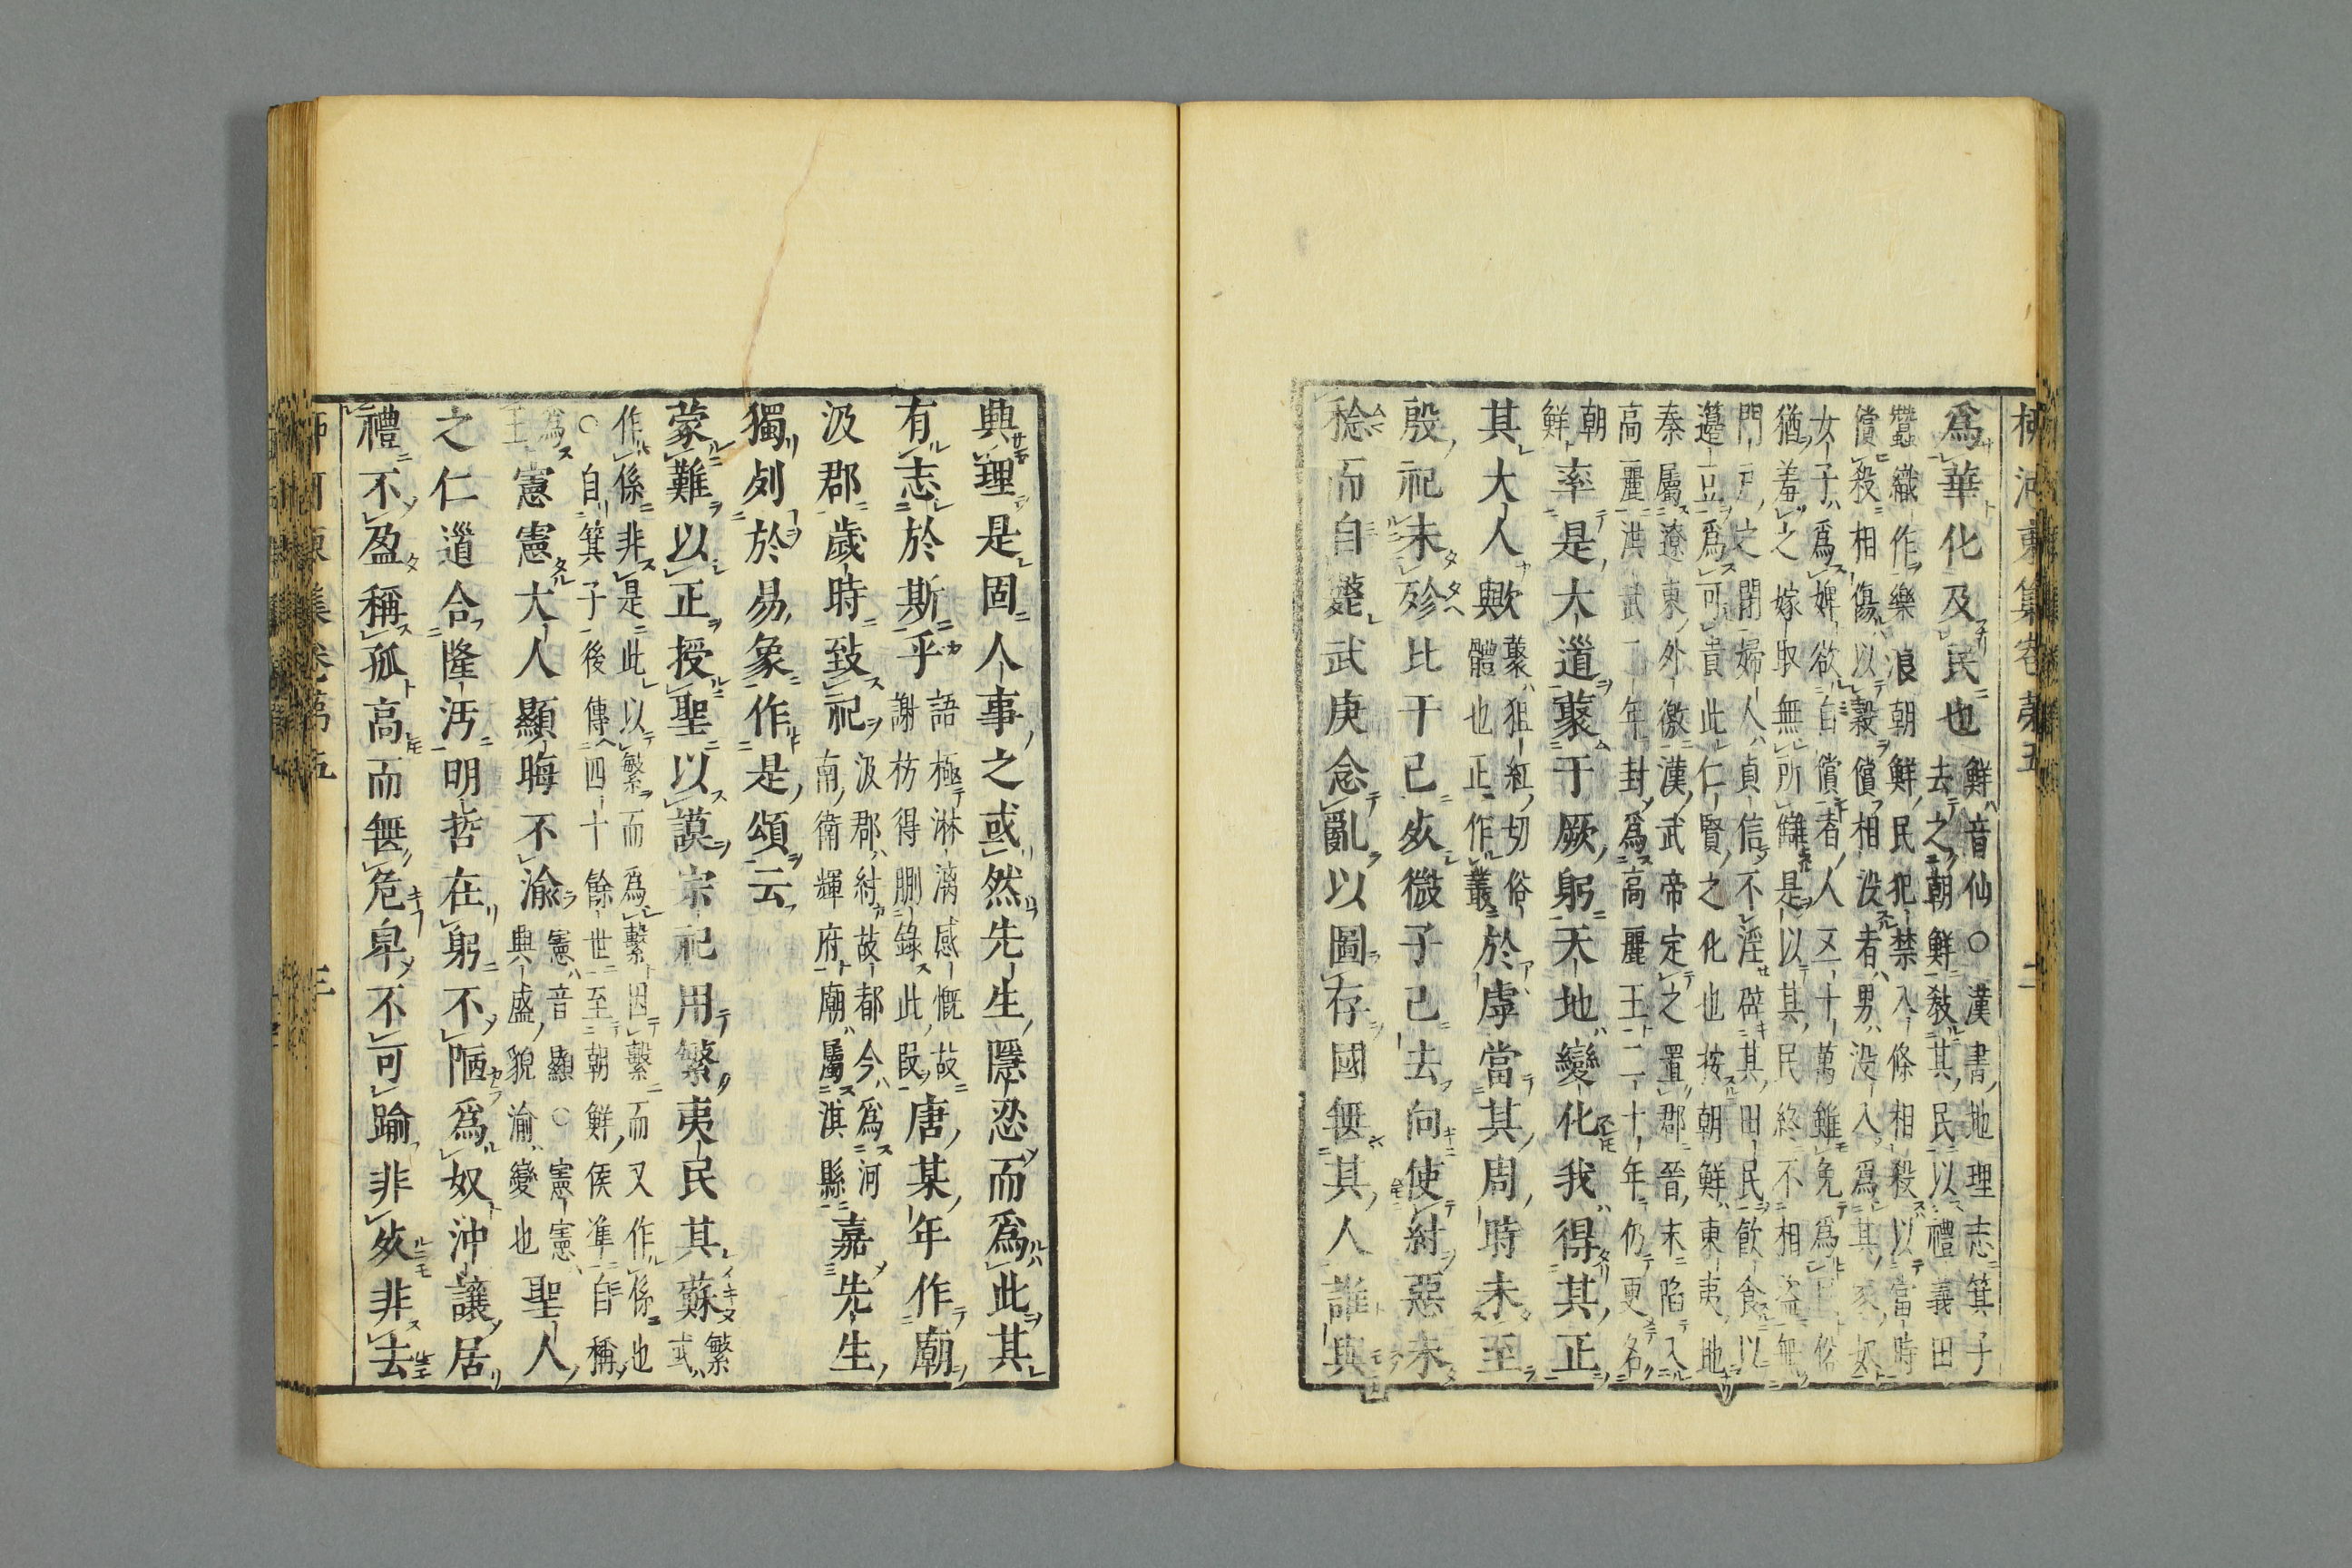 柳河東集卷第五 二
爲華化及民也鮮音仙○漢書地理志箕子
去之朝鮮敎其民以禮義田
蠶織作樂浪朝鮮民犯禁八條相殺以當時
償殺相傷以穀償相没者男没入爲其家奴
女子爲婢欲自償者人五十萬雖免爲民俗
猶羞之嫁取無所讎是以其民終不相盜無
門戸之閉婦人貞信不淫辟其田民飮食以
邊豆爲可貴此仁賢之化也按朝鮮東夷地
秦屬遼東外徼漢武帝定之置郡晉末陷入
高麗洪武二年封爲高麗王二十年仍更名
朝鮮率是大道藂于厥躬天地變化我得其正
其大人歟藂狙紅切俗
體也正作叢於虖當其周時未至
殷祀未殄比干已死微子已去向使紂惡未
稔而自斃武庚念亂以圖存國無其人誰與
典理是固人事之或然先生隱忍而爲此其
有志於斯乎語極淋漓感慨故
謝枋得刪錄此段唐某年作廟
汲郡歲時致祀汲郡紂故都今爲河
南衛輝府廟屬淇縣嘉先生
獨列於易象作是頌云
蒙難以正授聖以謨宗祀用繁夷民其蘇繁
或
作係非是此以繁而爲繫因繫而又作係也
○自箕子後傳四十餘世至朝鮮侯準自稱
爲
王憲憲大人顯晦不渝憲音顯○憲憲
興盛貌渝變也聖人
之仁道合隆汚明哲在躬不陋爲奴沖讓居
禮不盈稱孤高而無危卑不可踰非死非去
柳河東集卷第五 三